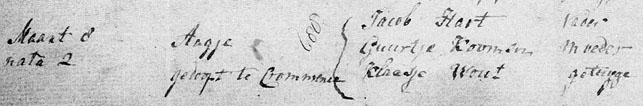 Maart 8 Aagje Jacob Hart Vader
nata 2 Guurtje Kooman Moeder
gedoopt te Crommenie Klaasje Wout getuyge